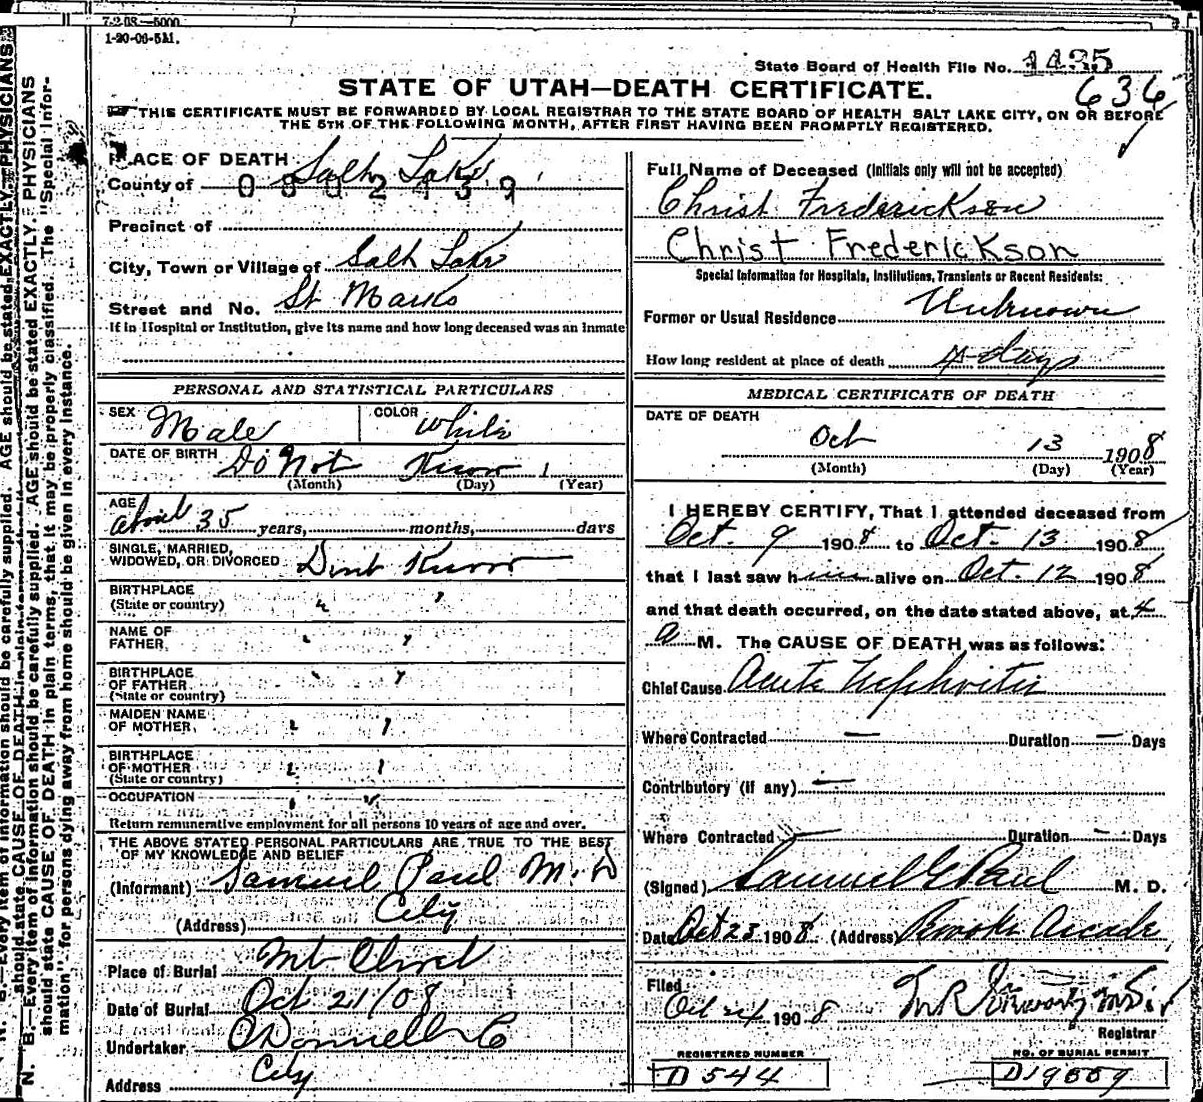 7-2-08.—5000
1-20-06-5M.
State Board of Health File No. 1435
636
STATE OF UTAH—DEATH CERTIFICATE.
THIS CERTIFICATE MUST BE FORWARDED BY LOCAL REGISTRAR TO THE STATE BOARD OF HEALTH SALT LAKE CITY, ON OR BEFORE
THE 5TH OF THE FOLLOWING MONTH, AFTER FIRST HAVING BEEN PROMPTLY REGISTERED.
PLACE OF DEATH
County of Salt Lake
0802139
Precinct of
City, Town or Village of Salt Lake
Street and No. St Marks
If in Hospital or Institution, give its name and how long deceased was an inmate
PERSONAL AND STATISTICAL PARTICULARS
SEX Male COLOR White
DATE OF BIRTH Do Not Know
(Month) (Day) (Year)
AGE About 35 years, months, days
SINGLE, MARRIED,
WIDOWED, OR DIVORCED Dont Know
BIRTHPLACE
(State or country) " "
NAME OF
FATHER " "
BIRTHPLACE
OF FATHER
(State or country) " "
MAIDEN NAME
OF MOTHER " "
BIRTHPLACE
OF MOTHER
(State or country) " "
OCCUPATION " "
Return remunerative employment for all persons 10 years of age and over.
THE ABOVE STATED PERSONAL PARTICULARS ARE TRUE TO THE BEST
OF MY KNOWLEDGE AND BELIEF
(Informant) Samuel Paul M.D
(Address) City
Place of Burial Mt Olivet
Date of Burial Oct 21/08
Undertaker O'Donnell & Co
Address City
Full Name of Deceased (Initials only will not be accepted)
Christ Frederickson
Christ Frederickson
Special Information for Hospitals, Institutions, Transients or Recent Residents:
Former or Usual Residence Unknown
How long resident at place of death 4 days
MEDICAL CERTIFICATE OF DEATH
DATE OF DEATH
Oct 13 1908
(Month) (Day) (Year)
I HEREBY CERTIFY, That I attended deceased from
Oct. 9 1908 to Oct. 13 1908
that I last saw him alive on Oct. 12 1908
and that death occurred, on the date stated above, at 4
a M. The CAUSE OF DEATH was as follows:
Chief Cause Acute Nephritis
Where Contracted — Duration — Days
Contributory (if any) —
Where Contracted — Duration — Days
(Signed) Samuel G Paul M. D.
Date Oct 23 1908 (Address) Brooks Arcade
Filed
Oct 24 1908
Registrar
REGISTERED NUMBER
D 544
NO. OF BURIAL PERMIT
D19559
N. B.—Every item of information should be carefully supplied. AGE should be stated EXACTLY. PHYSICIANS
should state CAUSE OF DEATH in plain terms, that it may be properly classified. The "Special Infor-
mation" for persons dying away from home should be given in every instance.